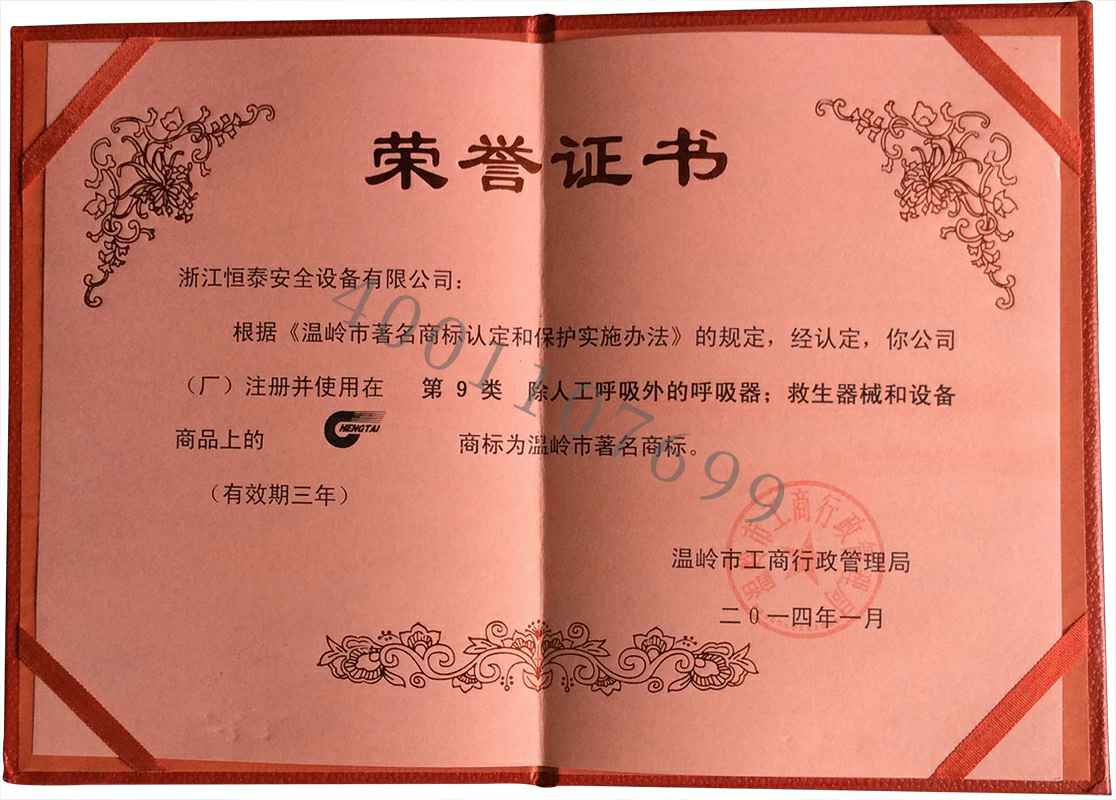 荣誉证书
浙江恒泰安全设备有限公司：
根据《温岭市著名商标认定和保护实施办法》的规定，经认定，你公司
（厂）注册并使用在 第 9 类 除人工呼吸外的呼吸器；救生器械和设备
商品上的 HENGTAI 商标为温岭市著名商标。
（有效期三年）
温岭市工商行政管理局
二0一四年一月
温岭市工商行政管理局
4001107699